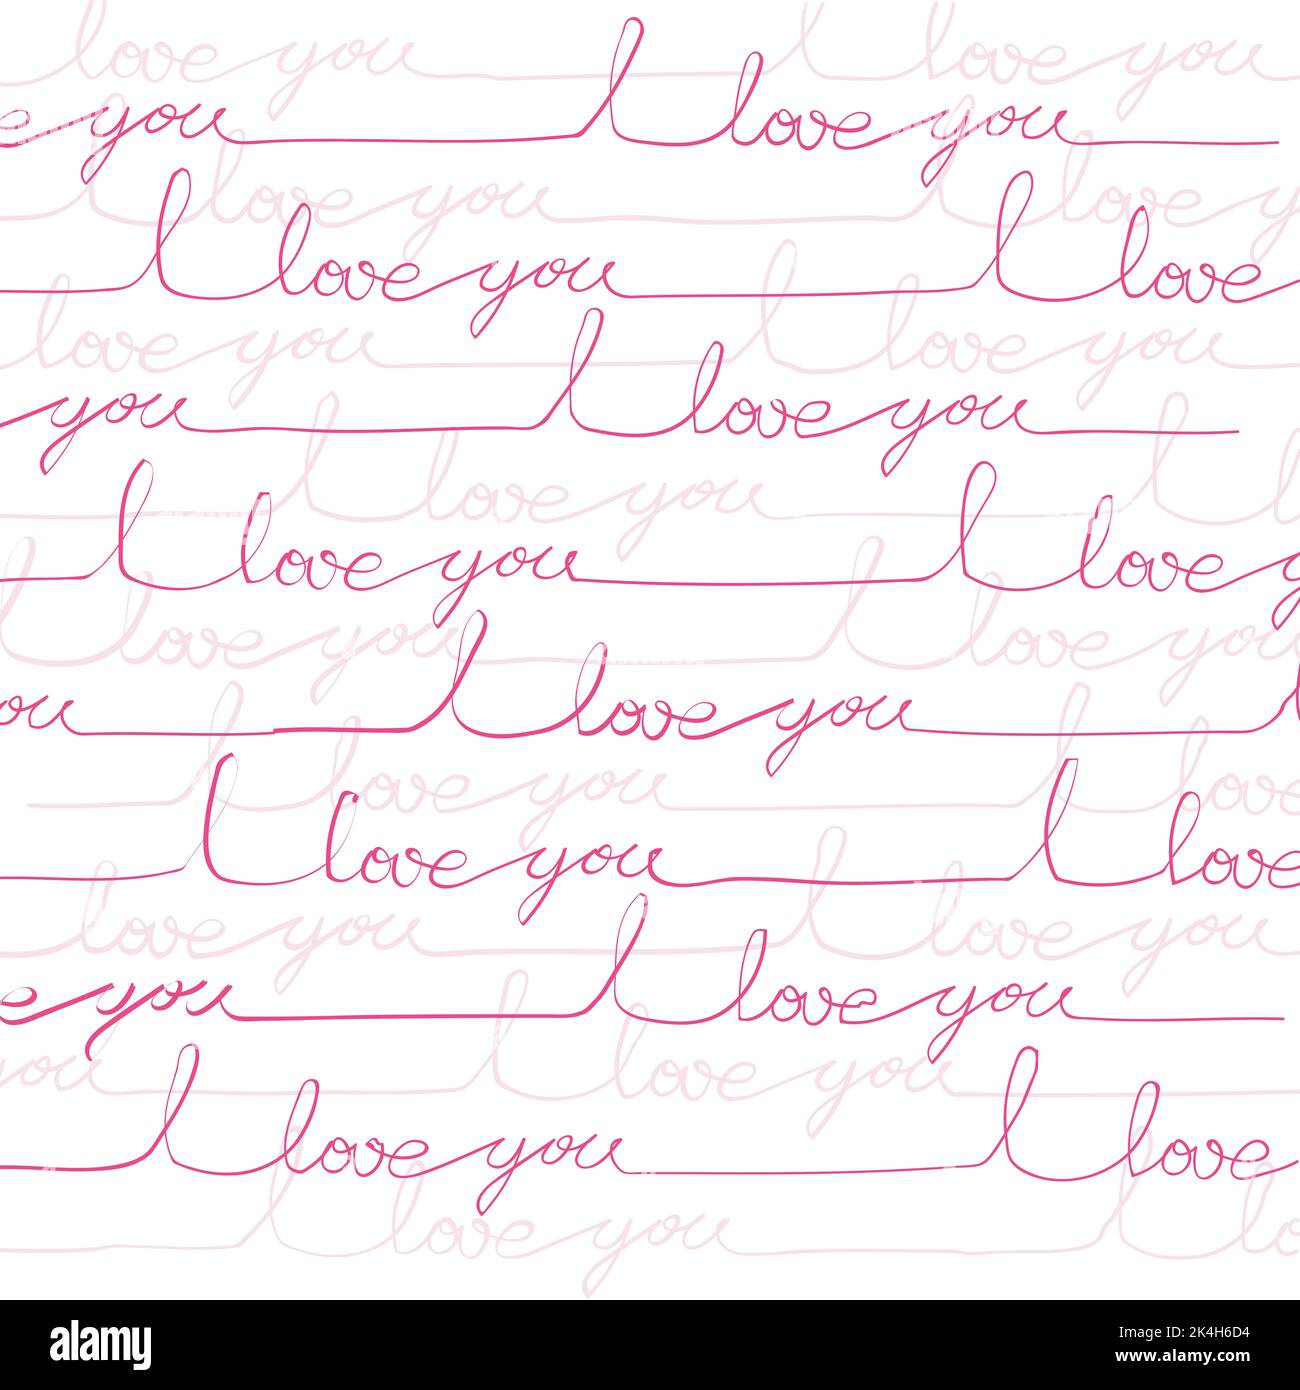 love you I love you
e you I love you
I love you I love y
I love you I love
love you I love you
you I love you
I love you I
I love you I love y
I love you I love you
ou I love you I
I love you I love
I love you I love
love you I love you
e you I love you
you I love you
I love you I love
I love you I lo
alamy
Image ID: 2K4H6D4
www.alamy.com